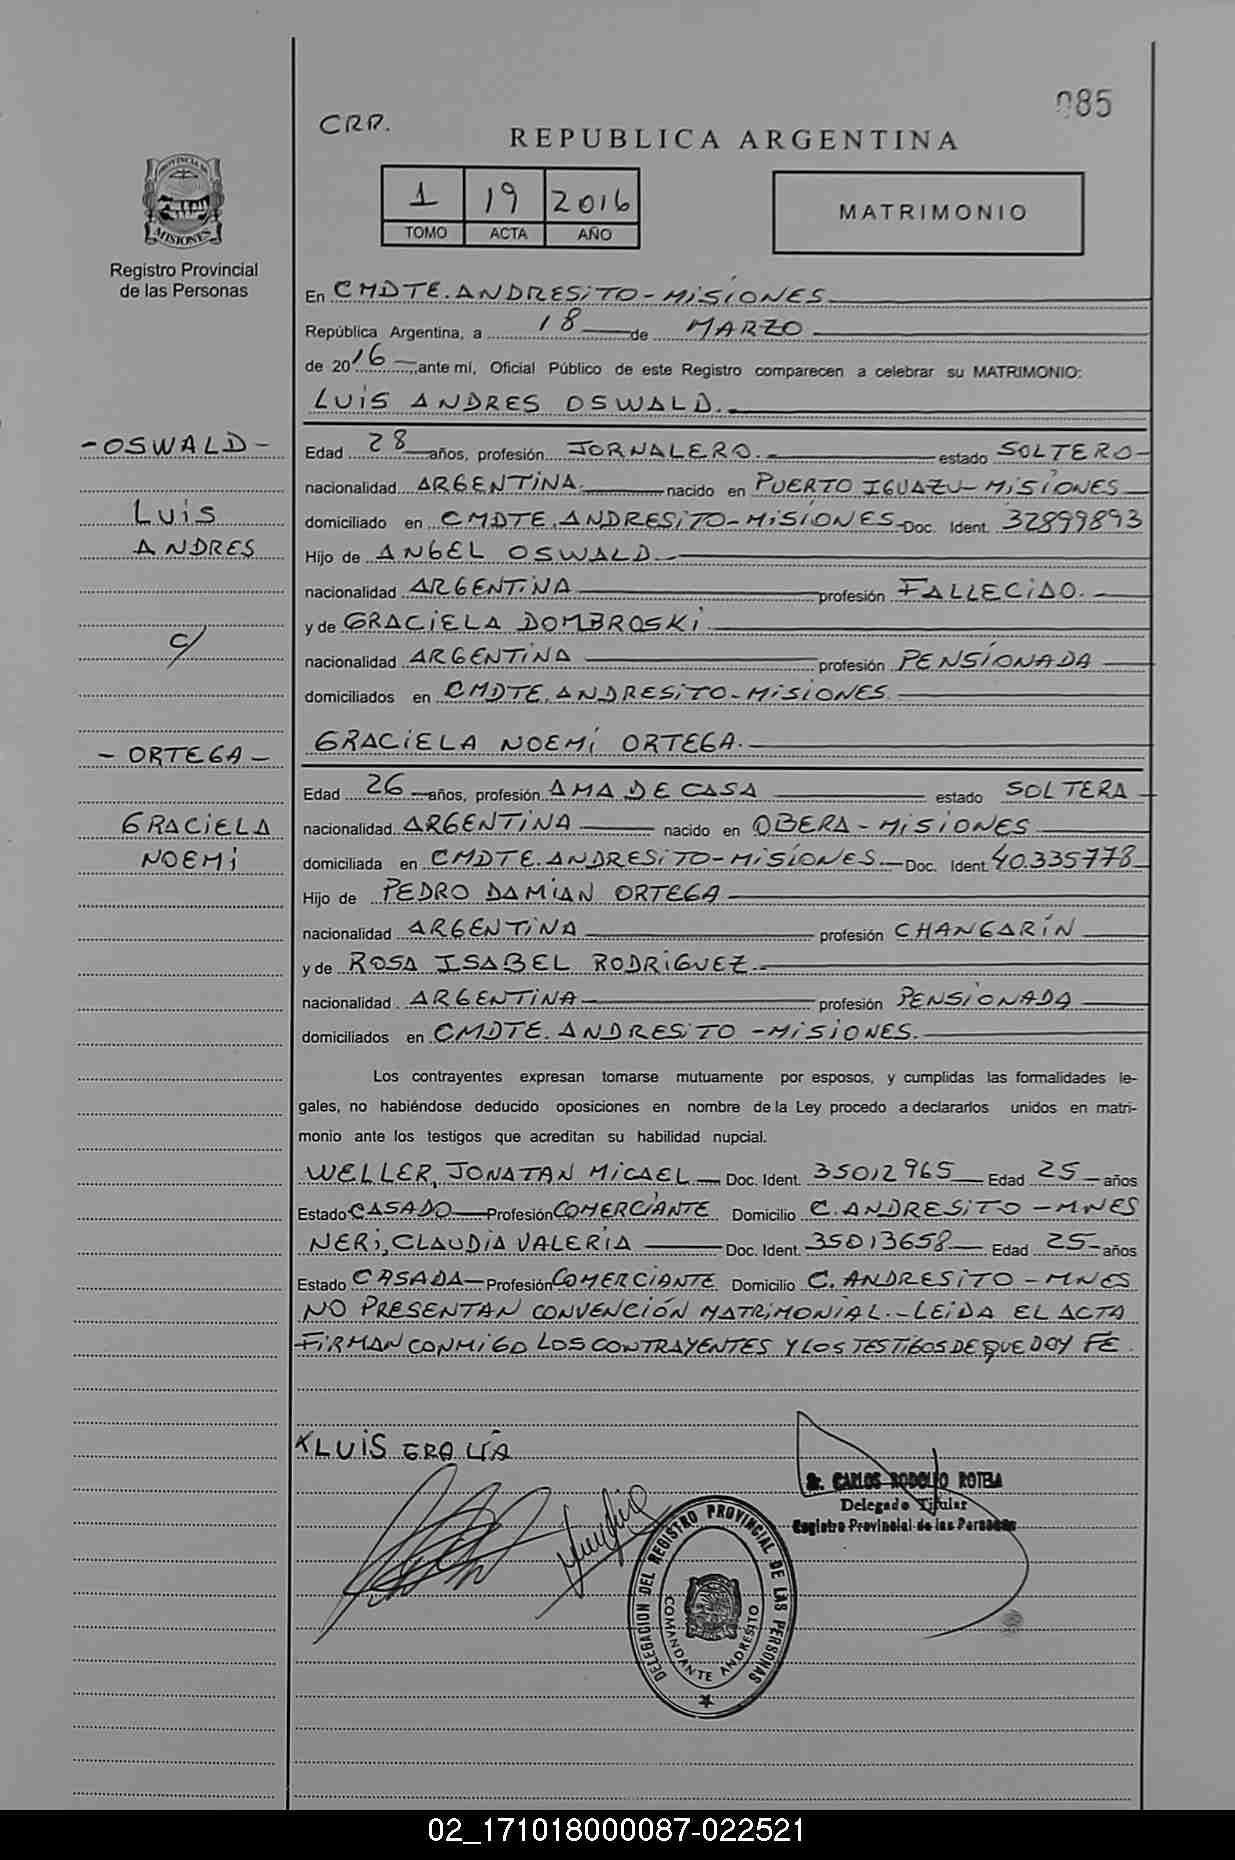 085
CRP.
REPUBLICA ARGENTINA
PROVINCIA DE
MISIONES
1 19 2016
TOMO ACTA AÑO
MATRIMONIO
Registro Provincial
de las Personas
En CMDTE. ANDRESiTO - MiSiONES
República Argentina, a 18 de MARZO
de 2016 ante mí, Oficial Público de este Registro comparecen a celebrar su MATRIMONIO:
LUiS ANDRES OSWALD.
- OSWALD -
Edad 28 años, profesión JORNALERO. estado SOLTERO
nacionalidad ARGENTiNA nacido en PUERTO IGUAZU - MiSiONES
LUiS
domiciliado en CMDTE. ANDRESiTO - MiSiONES Doc. Ident. 32899893
ANDRES
Hijo de ANGEL OSWALD.
nacionalidad ARGENTiNA profesión FALLECiDO.
y de GRACiELA DOMBROSKi
c/
nacionalidad ARGENTiNA profesión PENSiONADA
domiciliados en CMDTE. ANDRESiTO - MiSiONES
- ORTEGA -
GRACiELA NOEMí ORTEGA.
Edad 26 años, profesión AMA DE CASA estado SOLTERA
GRACiELA
nacionalidad ARGENTiNA nacido en OBERA - MiSiONES
NOEMí
domiciliada en CMDTE. ANDRESiTO - MiSiONES. Doc. Ident. 40.335778
Hijo de PEDRO DAMiAN ORTEGA
nacionalidad ARGENTiNA profesión CHANGARíN
y de ROSA ISABEL RODRiGUEZ.
nacionalidad ARGENTiNA profesión PENSiONADA
domiciliados en CMDTE. ANDRESiTO - MiSiONES.
Los contrayentes expresan tomarse mutuamente por esposos, y cumplidas las formalidades le-
gales, no habiéndose deducido oposiciones en nombre de la Ley procedo a declararlos unidos en matri-
monio ante los testigos que acreditan su habilidad nupcial.
WELLER, JONATAN MiCAEL Doc. Ident. 35012965 Edad 25 años
Estado CASADO Profesión COMERCiANTE Domicilio C. ANDRESiTO - MNES
NERi, CLAUDiA VALERiA Doc. Ident. 35013658 Edad 25 años
Estado CASADA Profesión COMERCiANTE Domicilio C. ANDRESiTO - MNES
NO PRESENTAN CONVENCiÓN MATRiMONiAL. - LEiDA EL ACTA
FiRMAN CONMiGO LOS CONTRAYENTES Y LOS TESTiGOS DE QUE DOY FÉ.
LUiS
Sr. CARLOS RODOLFO ROTELA
Delegado Titular
Registro Provincial de las Personas
DELEGACION DEL REGISTRO PROVINCIAL DE LAS PERSONAS
COMANDANTE ANDRESITO
02_171018000087-022521